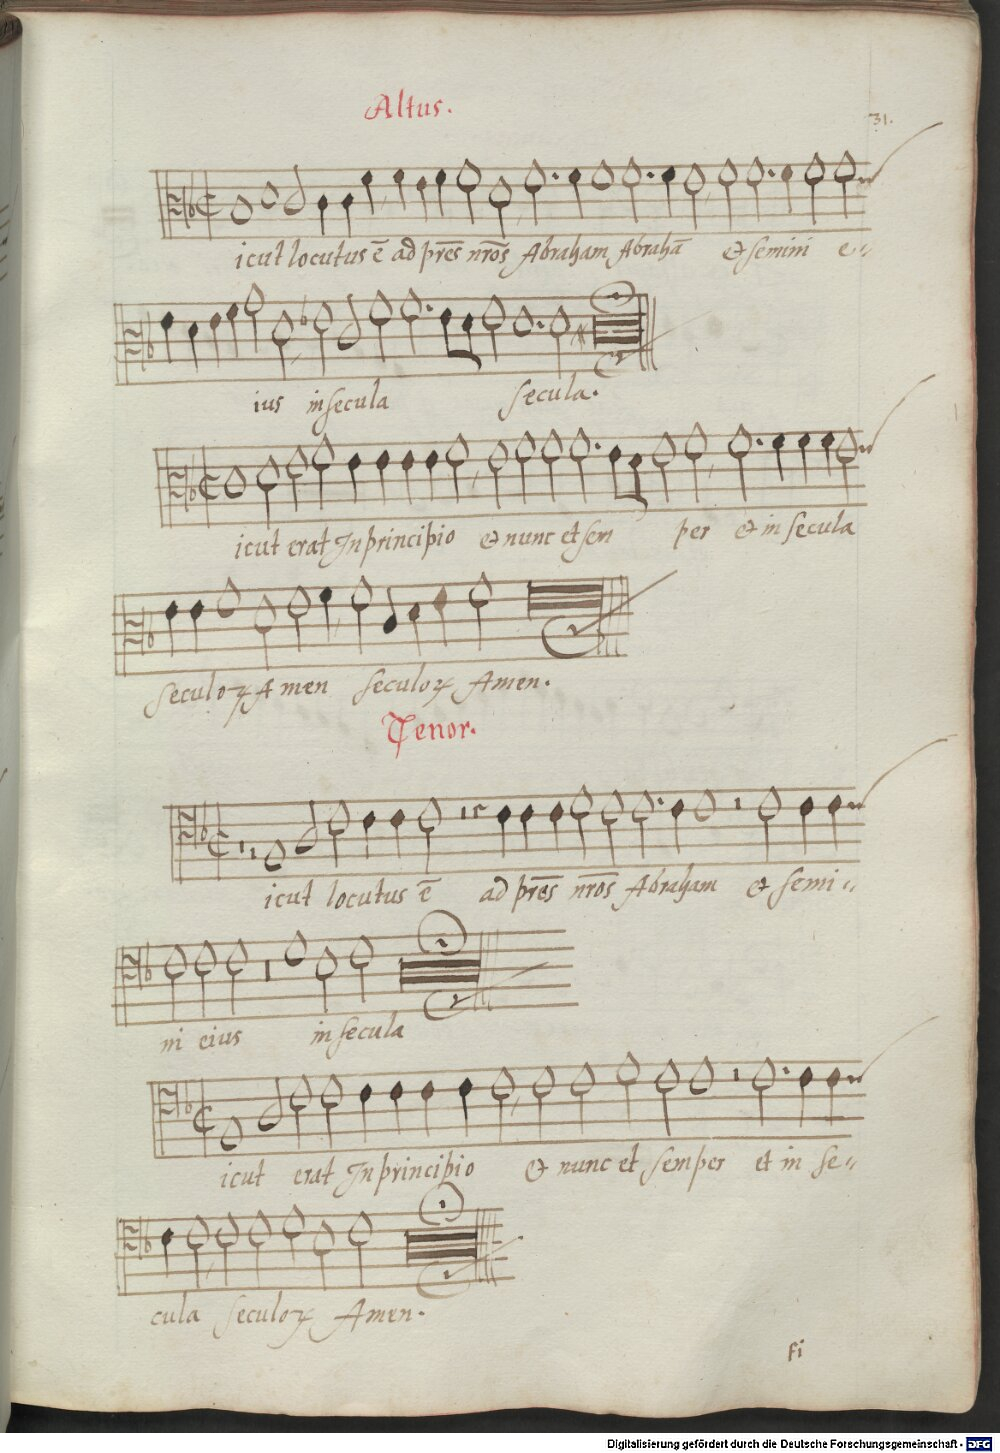 Altus.
31.
icut locutus ē ad p̄res nr̄os Abraham Abrahā & semini e-
ius in secula secula.
icut erat In principio & nunc et sem per & in secula
seculoꝝ Amen seculoꝝ Amen.
Tenor.
icut locutus ē ad p̄res nr̄os Abraham & semi-
ni eius in secula
icut erat In principio & nunc et semper et in se-
cula seculoꝝ Amen.
fi
Digitalisierung gefördert durch die Deutsche Forschungsgemeinschaft - DFG